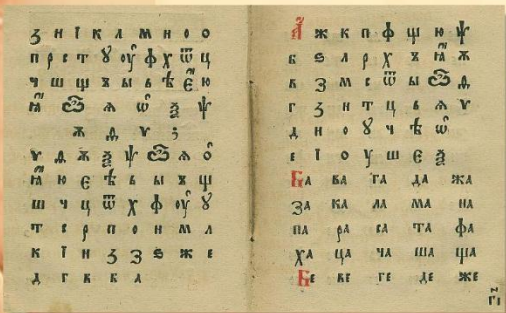 ꙁ и ї к л м н о ѻ
п р с т ꙋ оу ф х ѿ ц
ч ш щ ъ ы ь ѣ є ю
ꙗ ѽ ѧ ѡ ѯ ѱ
ѫ ѳ ѵ ;
ѵ ѳ ѫ ѯ ѱ ѽ ѧ ѡ
ꙗ ю є ѣ ь ы ъ щ
ш ч ц ѿ х ф оу ꙋ
т с р п о н м л
к ї и ꙁ з ѕ ж е
д г в б а
А ж к п ф щ ю ѱ
б ѕ л р х ъ ꙗ ѫ
в з м с ѿ ы ѽ ѳ
г ꙁ н т ц ь ѧ ѵ
д и о ꙋ ч ѣ ѡ
е ї о у ш є ѯ
Ба ва га да жа
за ка ла ма на
па ра са та фа
ха ца ча ша ща
Бе ве ге де же
г҃і